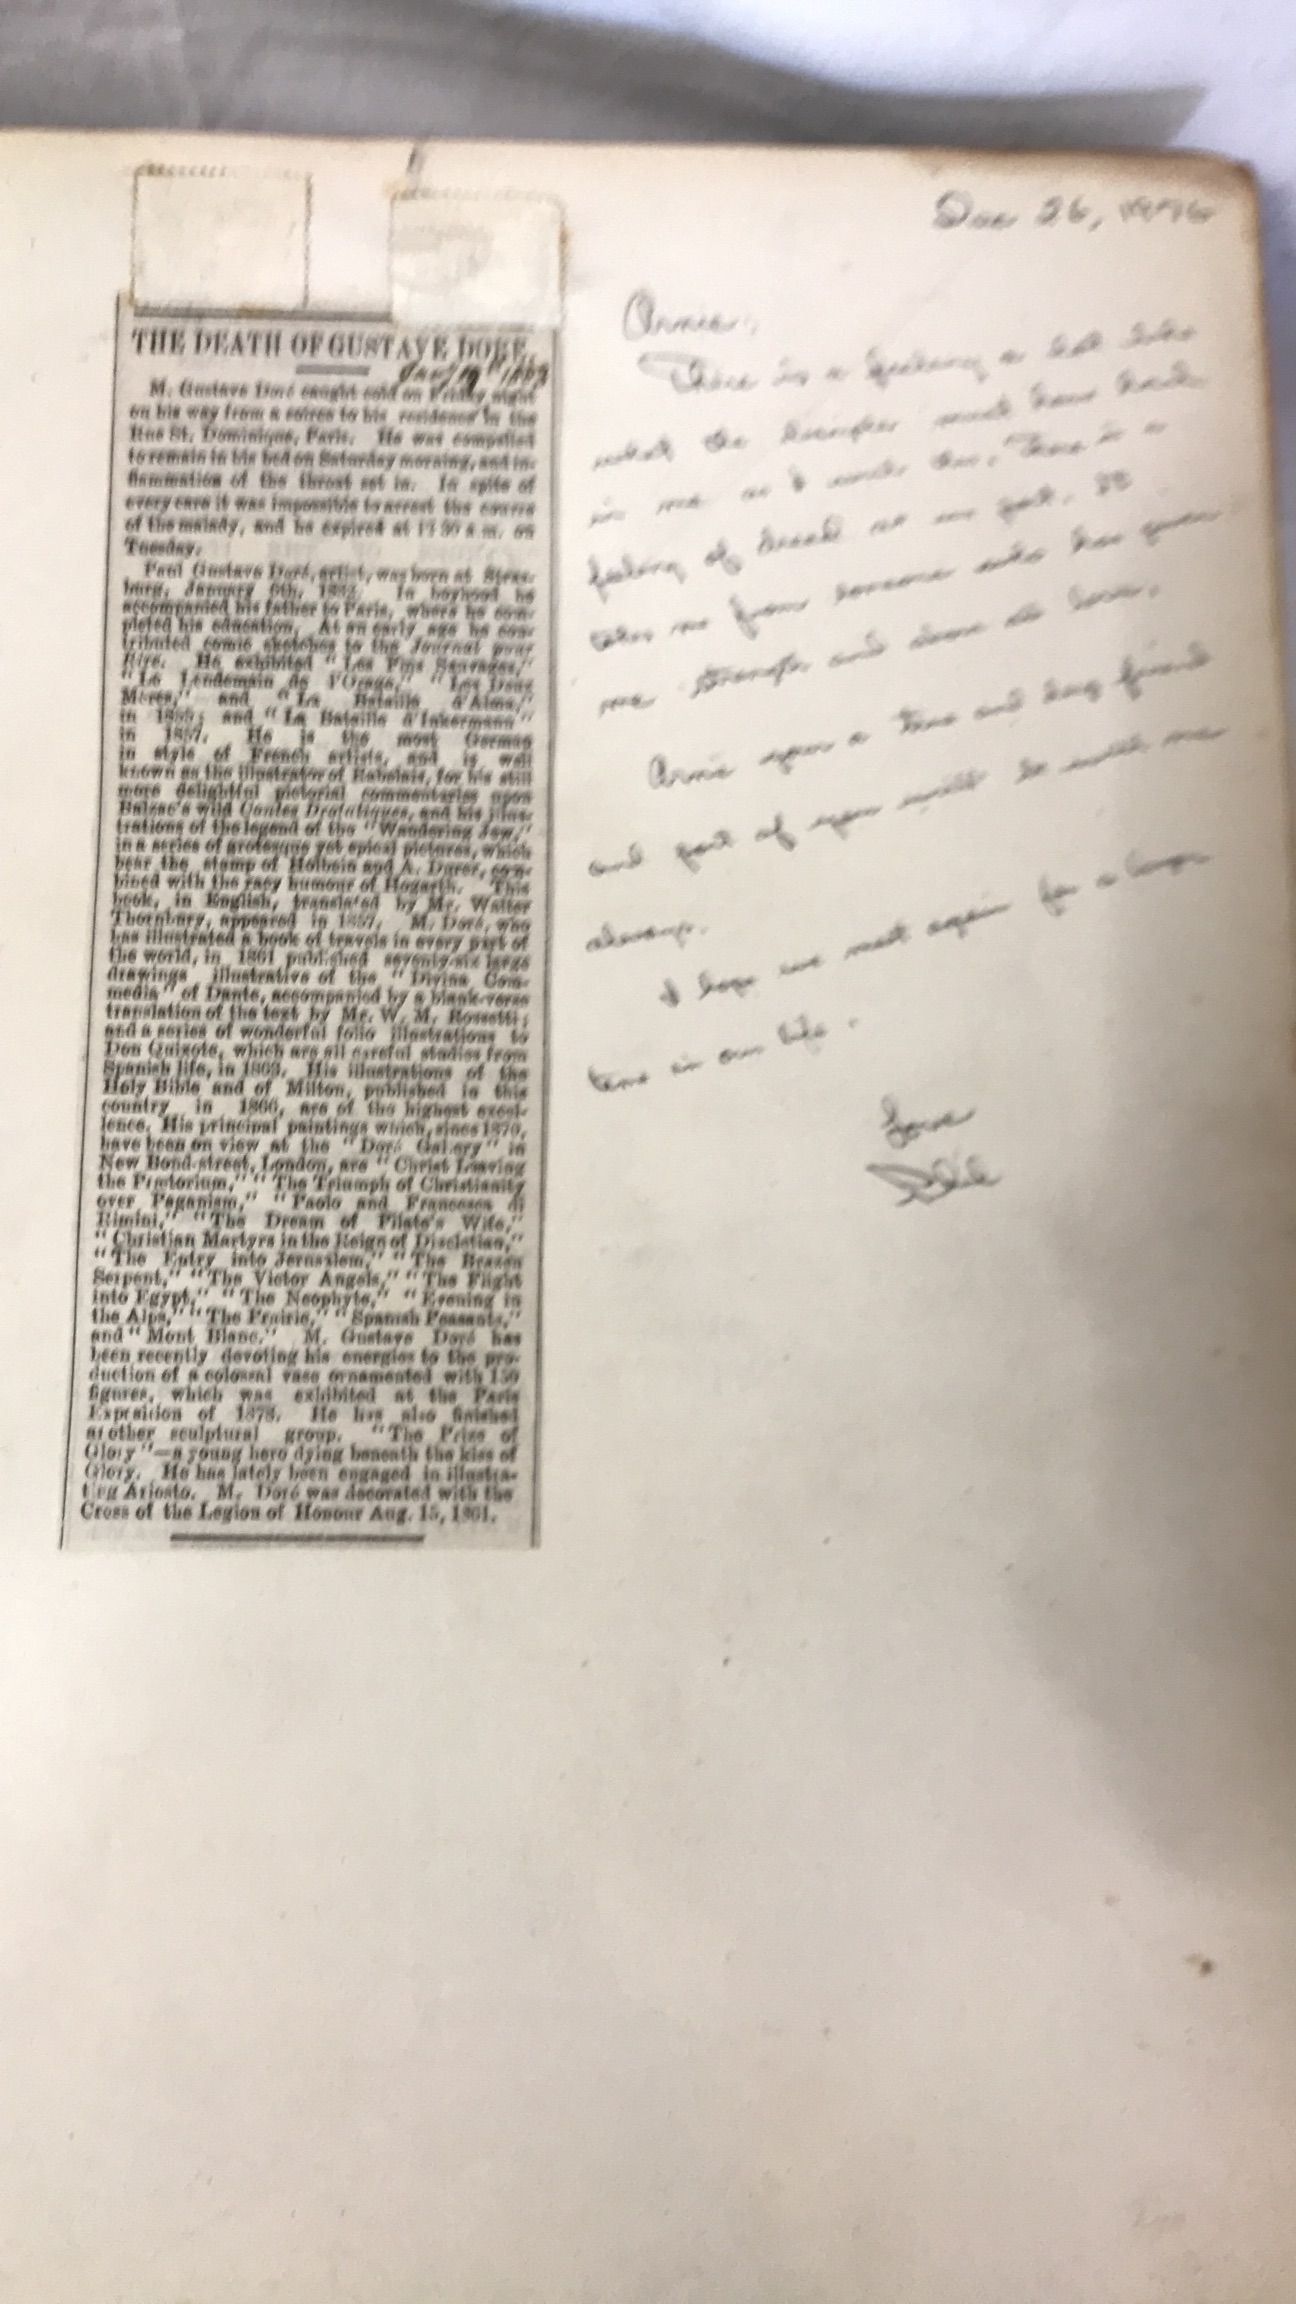 THE DEATH OF GUSTAVE DORE.
M. Gustave Doré caught cold on Friday night
on his way from a soiree to his residence in the
Rue St. Dominique, Paris. He was compelled
to remain in his bed on Saturday morning, and in-
flammation of the throat set in. In spite of
every care it was impossible to arrest the course
of the malady, and he expired at a.m. on
Tuesday.
Paul Gustave Doré, artist, was born at Stras-
burg, January 6th, In boyhood he
accompanied his father to Paris, where he com-
pleted his education. At an early age he con-
tributed comic sketches to the Journal pour
Rire. He exhibited "Les Pins Sauvages,"
"Le Lendemain de l'Orage," "Les Deux
Meres," and "La Bataille d'Alma,"
in 1855; and "La Bataille d'Inkermann"
in 1857. He is the most German
in style of French artists, and is well
known as the illustrator of Rabelais, for his still
more delightful pictorial commentaries upon
Balzac's wild Contes Drolatiques, and his illus-
trations of the legend of the "Wandering Jew,"
in a series of grotesque yet epical pictures, which
bear the stamp of Holbein and A. Durer, com-
bined with the racy humour of Hogarth. This
book, in English, translated by Mr. Walter
Thornbury, appeared in 1857. M. Doré, who
has illustrated a book of travels in every part of
the world, in 1861 published seventy-six large
drawings illustrative of the "Divina Com-
media" of Dante, accompanied by a blank-verse
translation of the text by Mr. W. M. Rossetti;
and a series of wonderful folio illustrations to
Don Quixote, which are all careful studies from
Spanish life, in 1863. His illustrations of the
Holy Bible and of Milton, published in this
country in 1866, are of the highest excel-
lence. His principal paintings which, since 1870,
have been on view at the "Doré Gallery" in
New Bond-street, London, are "Christ Leaving
the Prætorium," "The Triumph of Christianity
over Paganism," "Paolo and Francesca di
Rimini," "The Dream of Pilate's Wife,"
"Christian Martyrs in the Reign of Diocletian,"
"The Entry into Jerusalem," "The Brazen
Serpent," "The Victor Angels," "The Flight
into Egypt," "The Neophyte," "Evening in
the Alps," "The Prairie," "Spanish Peasants,"
and "Mont Blanc." M. Gustave Doré has
been recently devoting his energies to the pro-
duction of a colossal vase ornamented with 150
figures, which was exhibited at the Paris
Exposition of 1878. He has also finished
another sculptural group. "The Prize of
Glory"—a young hero dying beneath the kiss of
Glory. He has lately been engaged in illustra-
ting Ariosto. M. Doré was decorated with the
Cross of the Legion of Honour Aug. 15, 1861.
26,
Arnie
There is a feeling a bit like
what the must have had
in me as I write this. There is a
feeling of on my part. It
takes me from someone who has given
me strength and shown me love.
Arnie you a true and long friend
and part of you will be with me
always.
I hope we meet again for a longer
time in our life.
Love